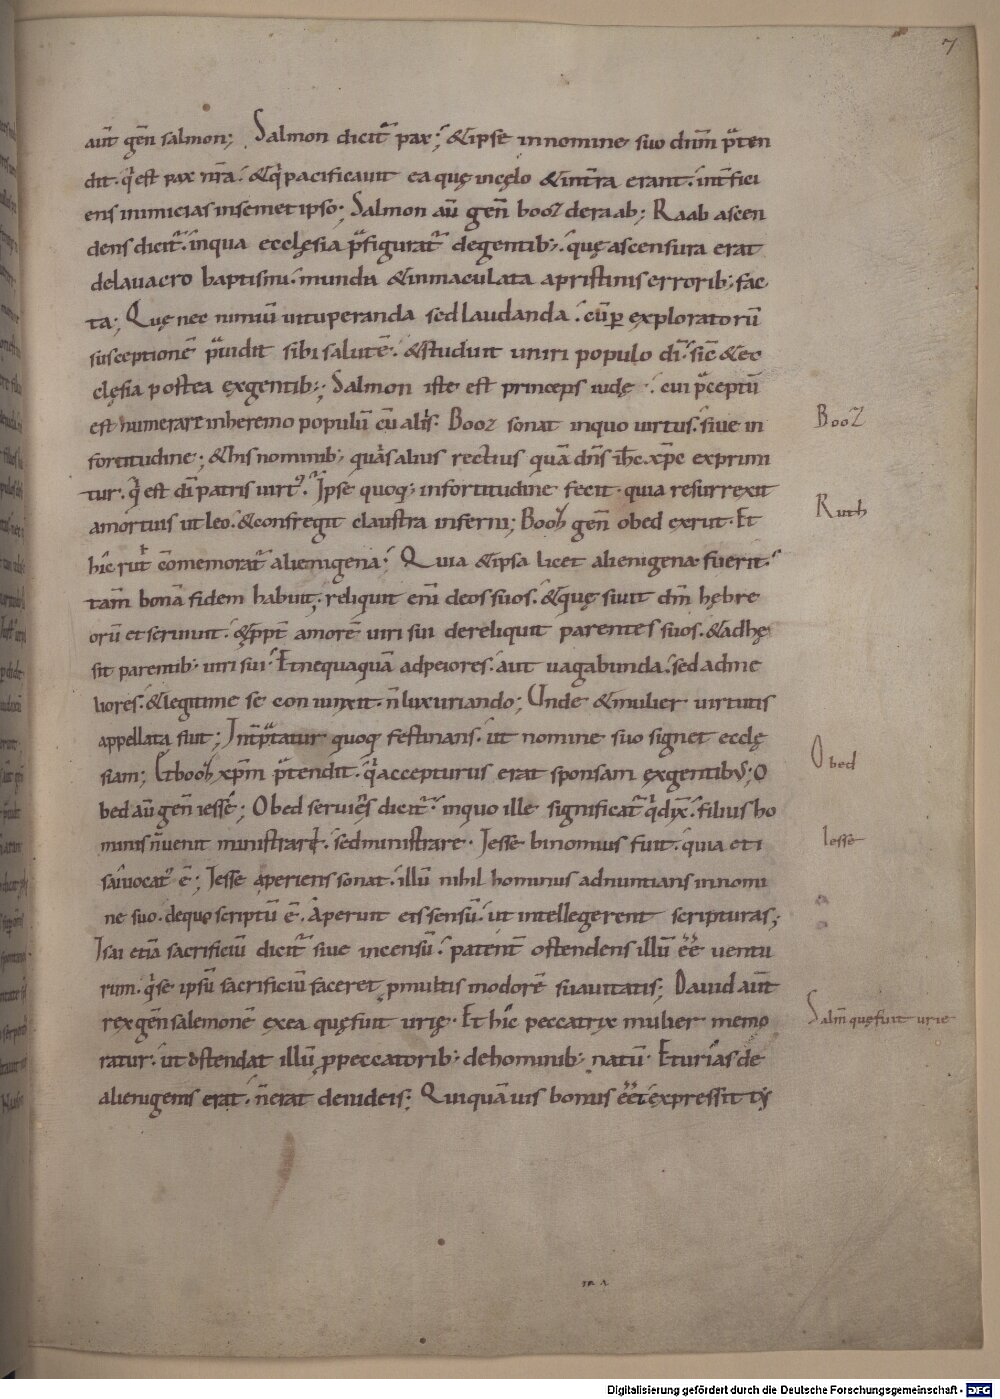 7
aut̄ gen̄ salmon; Salmon dicit᷑ pax; &ipse innomine suo dn̄m p̄ten
dit. q̇ est pax nr̄a. &q̇ pacificauit ea quę incęlo &int̄ra erant. int̄fici
ens inimicias insemet ipso; Salmon au᷑ gen̄ booz deraab; Raab ascen
dens dicit᷑. inqua ecclęsia p̄figurat᷑ degentib;. quę ascensura erat
delauacro baptismi. munda &inmaculata apristinis errorib; fac
ta; Quę nec nimiū uituperanda sed laudanda. cū p exploratorū
susceptionē p̄uidit sibi salutē. &studuit uniri populo dī. sic̄ &ec
clęsia postea exgentib;; Salmon iste est princeps iudę. cui p̄ceptū
est numerare inheremo populū cū aliis. Booz sonat inquo uirtus. siue in
fortitudine; &his nominib; quā salius rectius quā dn̄s ih̄c xp̄c exprimi
tur. q̇ est dī patris uirt᷒. Ipse quoq; infortitudine fecit. quia resurrexit
amortuis ut leo. &confregit claustra inferni; Booz gen̄ obed exrut. Et
hic rut cōmemorat᷑ alienigena. Quia &ipsa licet alienigena fuerit.
tam̄ bonā fidem habuit. reliquit eni᷑ deos suos. &quęsiuit dm̄ hębre
orū et seruiuit. &ppt̄ amorē uiri sui dereliquit parentes suos. &adhę
sit parentib; uiri sui. Et nequaquā adpeiores. aut uagabunda. sed adme
liores. &legitime se coniunxit. n̄ luxuriando; Unde &mulier uirtutis
appellata fuit; Int̄p̄tatur quoq; festinans. ut nomine suo signet ecclę
siam; Et booz xp̄m p̄tendit. q̇ accepturus erat sponsam exgentibus; O
bed au᷑ gen̄ iesse; Obed seruiēs dicit᷑. inquo ille significat᷑ q̇ dix̄. filius ho
minis n̄ uenit ministrari. sed ministrare. Iesse binomius fuit. quia et i
sai uocat᷒ ē; Iesse aperiens sonat. illū nihil hominus adnuntians innomi
ne suo. dequo scriptū ē. Aperuit eis sensū. ut intellegerent scripturas;
Isai etiā sacrificiū dicit᷑ siue incensū. patent̄ ostendens illū ēē ventu
rum. q̇ se ipsū sacrificiū faceret pmultis inodorē suauitatis; Dauid aut̄
rex gen̄ salemonē exea quę fuit urię. Et hic peccatrix mulier memo
ratur. ut ostendat illū ppeccatorib; dehominib; natū. Et urias de
alienigenis erat. n̄ erat deiudeis; Quiquā uis bonus ēēt expressit ty
Booz
Ruth
Obed
Iesse
Salm̄ quę fuit urie